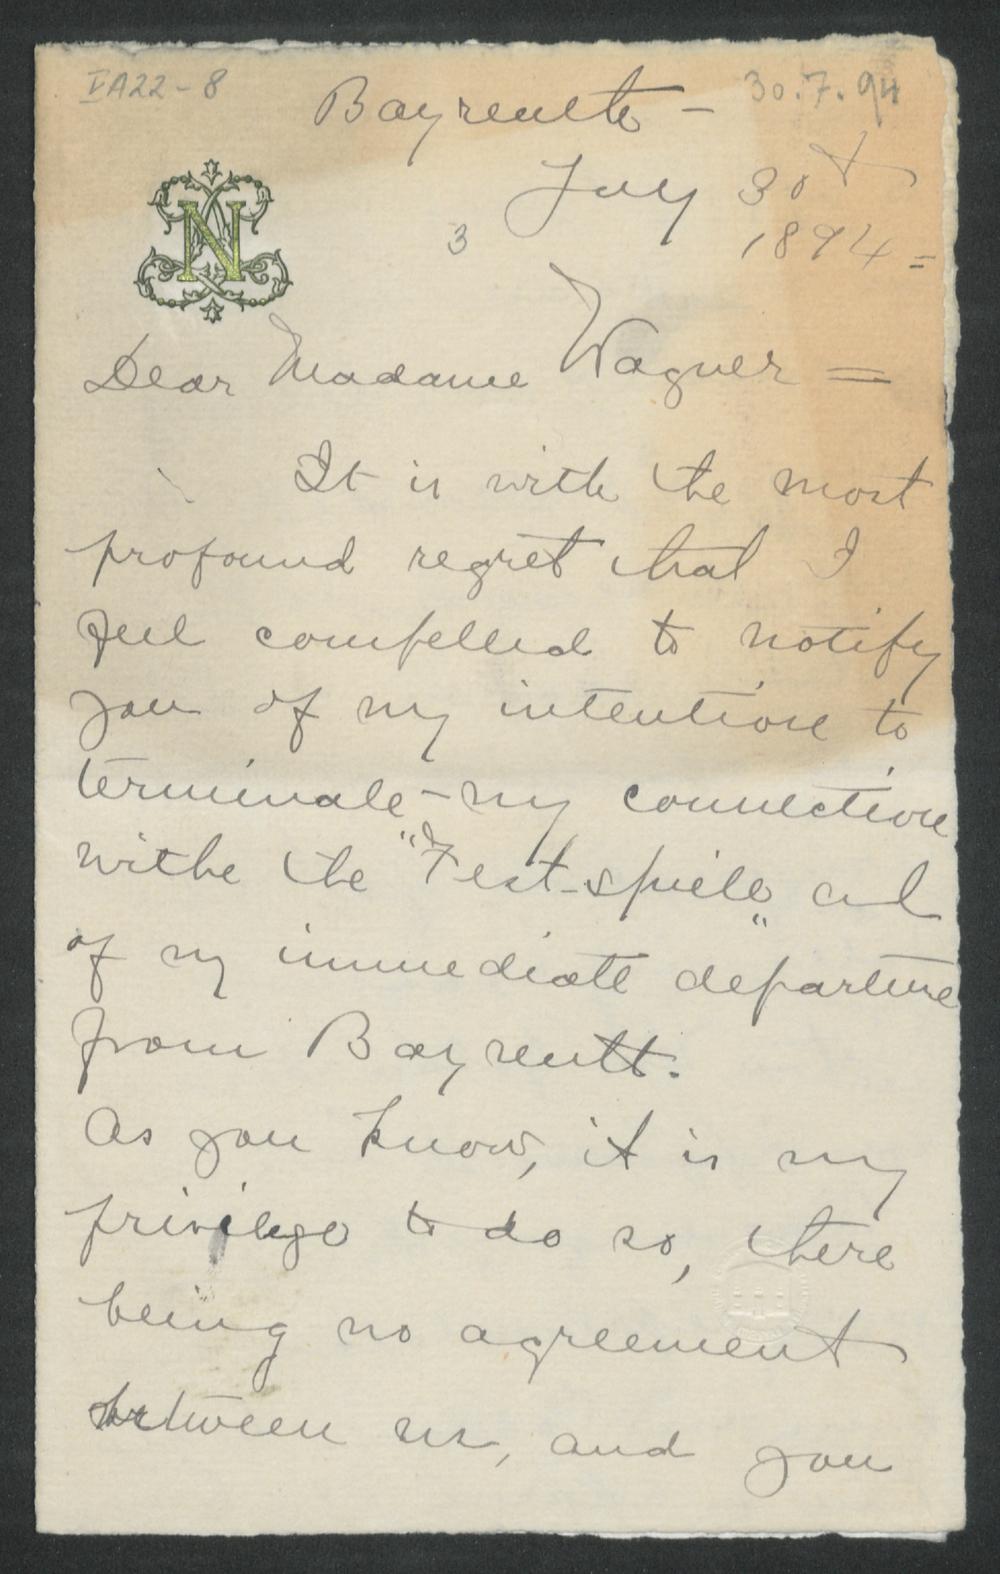 VA22-8
30.7.94
Bayreuth -
July 30th
3
1894 =
N
Dear Madame Wagner =
It is with the most
profound regret that I
feel compelled to notify
you of my intention to
terminate - my connection
with the "Fest-spiele" and
of my immediate departure
from Bayreuth.
As you know, it is my
privilege to do so, there
being no agreement
between us, and you